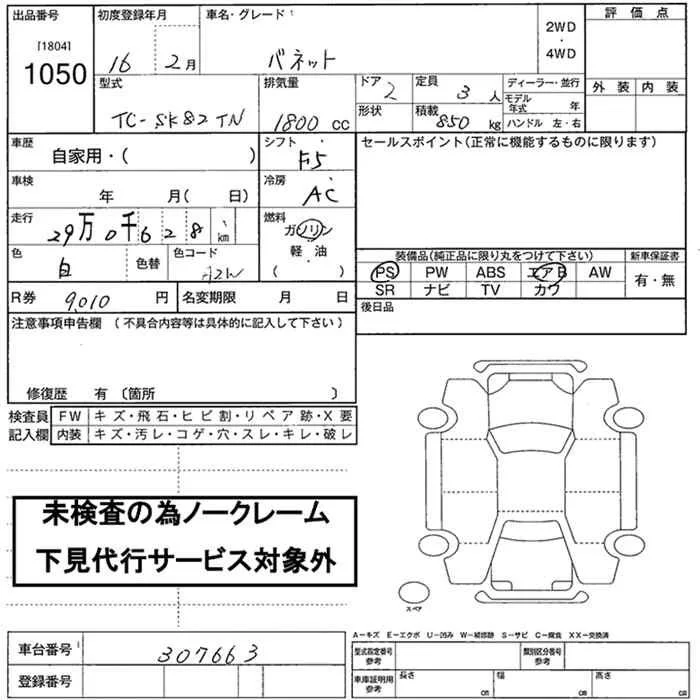 出品番号 初度登録年月 車名・グレード 評価点
[1804]
1050
16 2月 バネット 2WD・4WD
外装 内装
型式 排気量 ドア 定員 ディーラー・並行
TC-SK82TN 1800 cc 2 3人 モデル年式 年
形状 積載 850 kg ハンドル 左・右
車歴 シフト セールスポイント(正常に機能するものに限ります)
自家用・( ) F5
車検 冷房
年 月( 日) AC
走行 燃料
29万0千628 km ガソリン
軽・油
( )
色 色替 色コード 装備品(純正品に限り丸をつけて下さい) 新車保証書
白 PS PW ABS エアB AW 有・無
SR ナビ TV カワ
R券 9,010 円 名変期限 月 日 後日品
注意事項申告欄 (不具合内容等は具体的に記入して下さい)
修復歴 有 〔箇所 〕
検査員 FW キズ・飛石・ヒビ割・リペア跡・X要
記入欄 内装 キズ・汚レ・コゲ・穴・スレ・キレ・破レ
未検査の為ノークレーム
下見代行サービス対象外
スペア
A-キズ E-エクボ U-凹み W-補修跡 S-サビ C-腐食 XX-交換済
車台番号 307663 型式指定番号 参考 類別区分番号 参考
登録番号 車庫証明用 参考 長さ cm 幅 cm 高さ cm